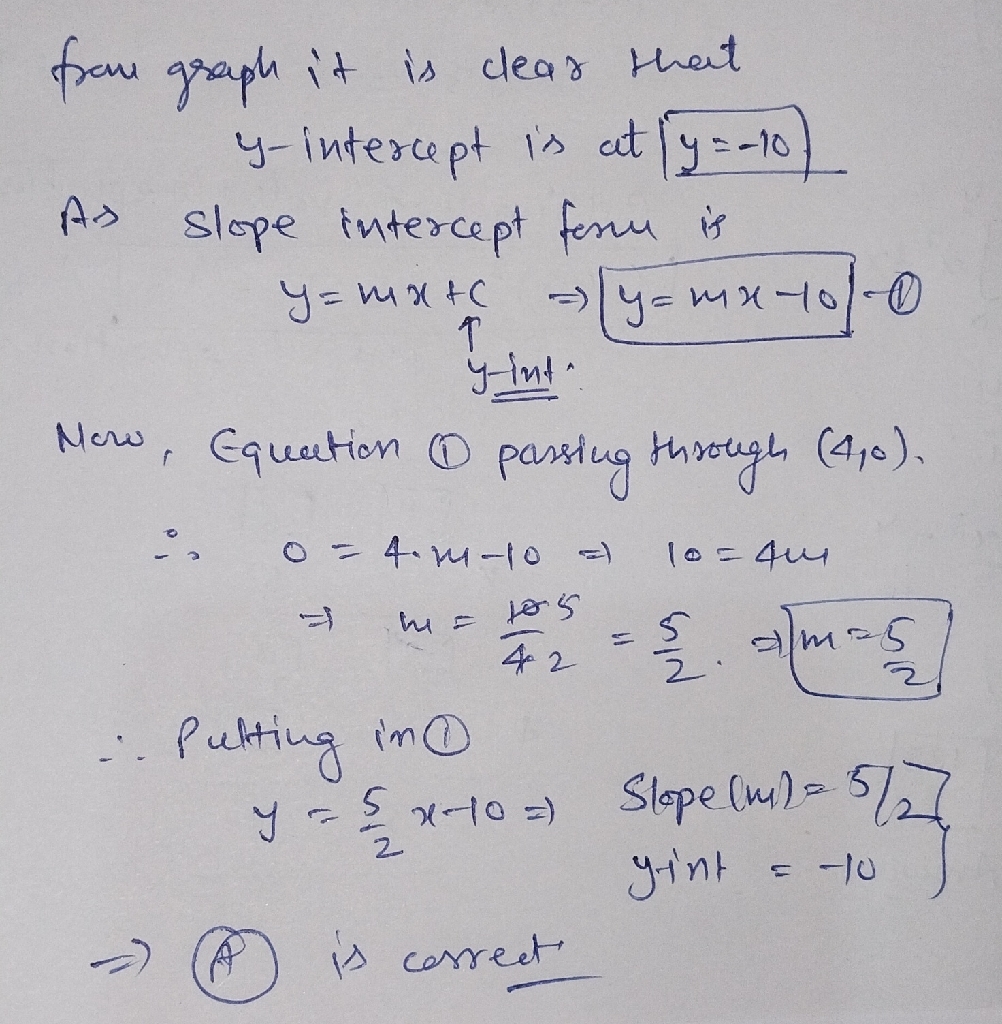 from graph it is clear that
y-intercept is at y=-10
As slope intercept form is
y=mx+c ⇒ y=mx-10 -①
↑
y-int.
Now, Equation ① passing through (4,0).
∴ 0=4.m-10 ⇒ 10=4m
⇒ m = 10 5 / 4 2 = 5/2. ⇒ m=5/2
∴ Putting in ①
y = 5/2 x-10 ⇒ Slope(m)=5/2
y-int = -10
⇒ Ⓐ is correct